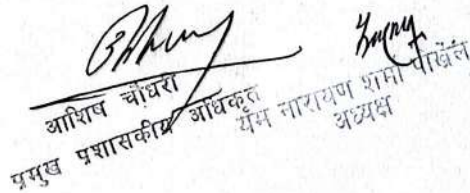 आशिष चौधरी
प्रमुख प्रशासकीय अधिकृत
यम नारायण शर्मा पोखेल
अध्यक्ष